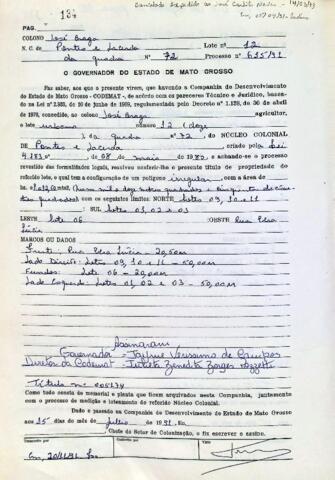 134
PAG.
COLONO José Braga Lote nº 12
N. C. de Pontes e Lacerda
da quadra nº 72 Processo 635/91
O GOVERNADOR DO ESTADO DE MATO GROSSO
Faz saber, aos que a presente virem, que havendo a Companhia de Desenvolvimento
do Estado de Mato Grosso - CODEMAT-, de acórdo com os pareceres Técnico e Jurídico, baseado
na Lei nº 2.353, de 10 de junho de 1969, regulamentada pelo Decreto nº 1.138, de 30 de abril
de 1970, concedido ao colono, José Braga agricultor,
o lote urbano número 12 (doze
) da quadra nº 72, DO NÚCLEO COLONIAL
DE Pontes e Lacerda criado pela Lei
4.183 de 08 de maio 1980, e achando-se o processo
revestido das formalidades legais, resolveu conferir-lhe o presente título de propriedade do
referido lote, o qual tem a configuração de um polígono irregular, com a área de
com os seguintes limites: NORTE lotes 09, 10
e 11 SUL lotes 01, 02 e 03
LESTE lote 06 OESTE Rua Vera
Lúcia
MARCOS OU DADOS
Frente: Rua Vera Lúcia - 20,50m
Lado Direito: lotes 09, 10 e 11 - 50,00m
Fundos: lote 06 - 20,00m
Lado Esquerdo: lotes 01, 02 e 03 - 50,00m
Assinaram
Governador - Jayme Verissimo de Campos
Diretor da Codemat -
Título nº 005134
Como tudo consta do memorial e planta que ficam arquivados nesta Companhia, juntamente
com o processo de medição e loteamento do referido Núcleo Colonial.
Dado e passado na Companhia de Desenvolvimento do Estado de Mato Grosso
aos 15 dias do mês de julho de 1991. Eu,
Chefe do Setor de Colonização, o fiz escrever e assino.
Visto
Em, 20/11/91